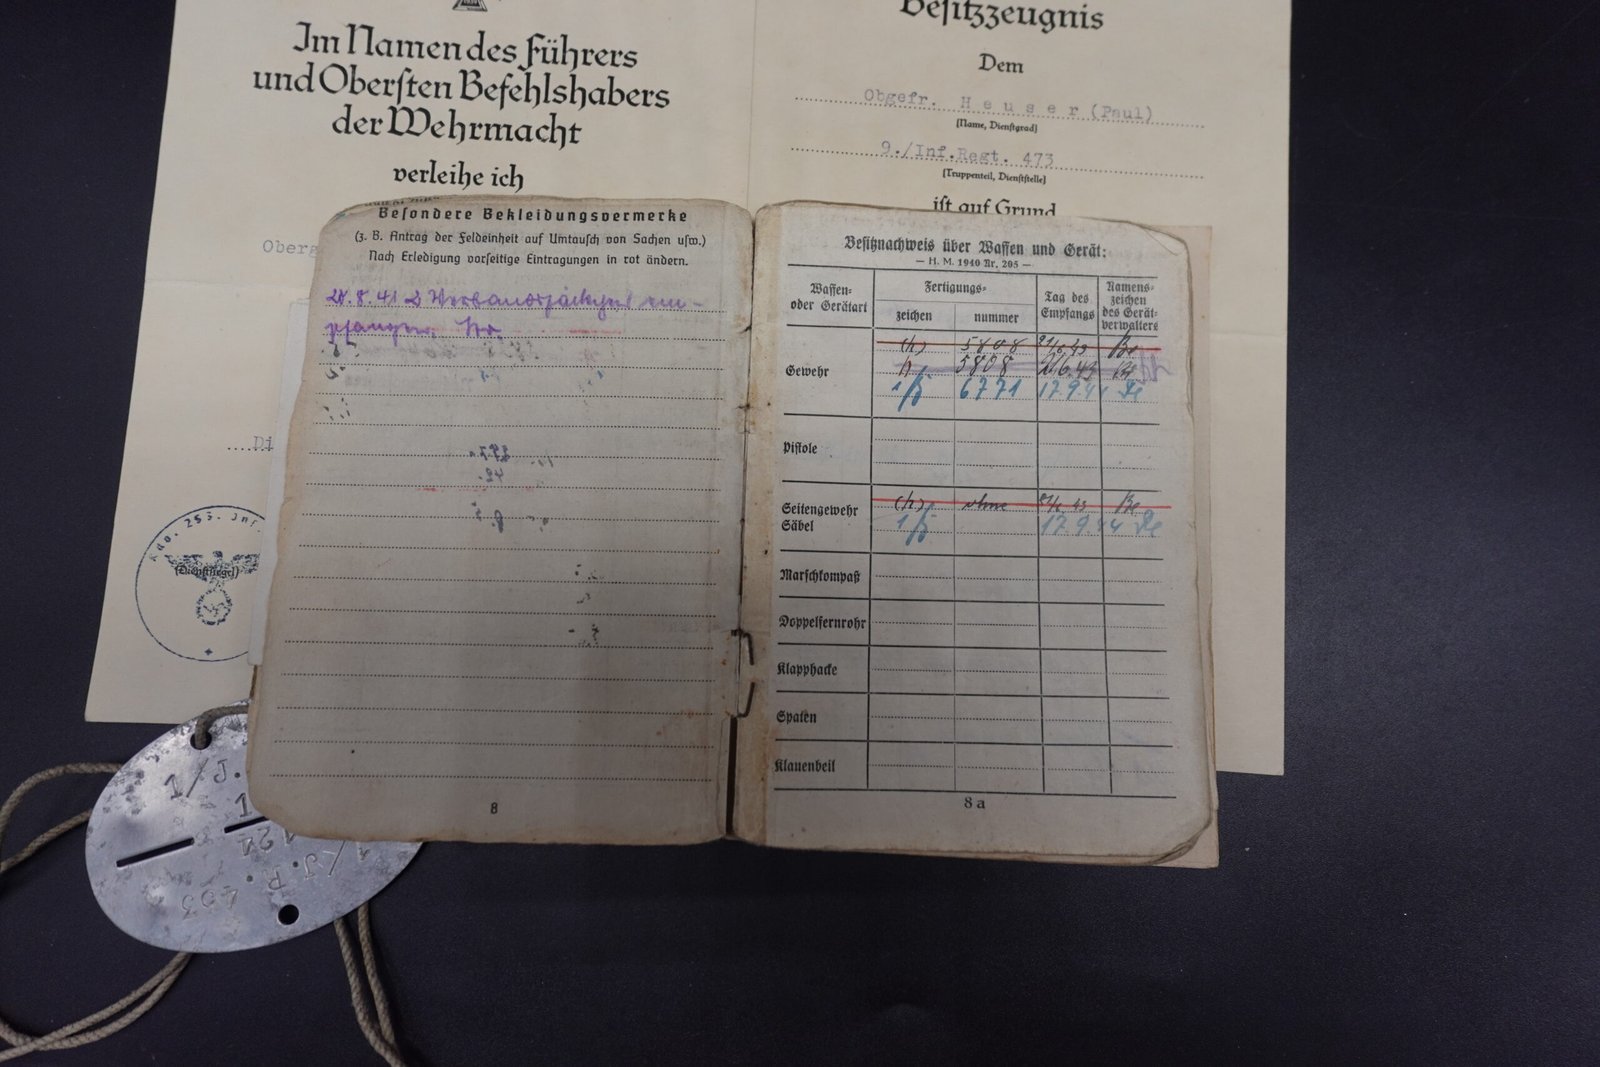 Im Namen des Führers
und Obersten Befehlshabers
der Wehrmacht
verleihe ich
Oberg
Di
Kdo. 253. Inf
(Dienstsiegel)
Besitzzeugnis
Dem
Obgefr. Heuser (Paul)
(Name, Dienstgrad)
9./Inf.Regt. 473
(Truppenteil, Dienststelle)
ist auf Grund
Besondere Bekleidungsvermerke
(z. B. Antrag der Feldeinheit auf Umtausch von Sachen usw.)
Nach Erledigung vorseitige Eintragungen in rot ändern.
28.8.41 2 em-
pfangen
8
Besitznachweis über Waffen und Gerät:
— H. M. 1940 Nr. 205 —
Waffen- oder Gerätart
Fertigungs-
zeichen
nummer
Tag des Empfangs
Namens-zeichen des Gerät-verwalters
Gewehr
(h) 5808 Be
h 5808 21.6.43 Be
6771 17.9.44
Pistole
Seitengewehr
Säbel
(h) ohne Be
17.9.44
Marschkompaß
Doppelfernrohr
Klapphacke
Spaten
Klauenbeil
8a
1/J.
1
121
1/J.R. 403